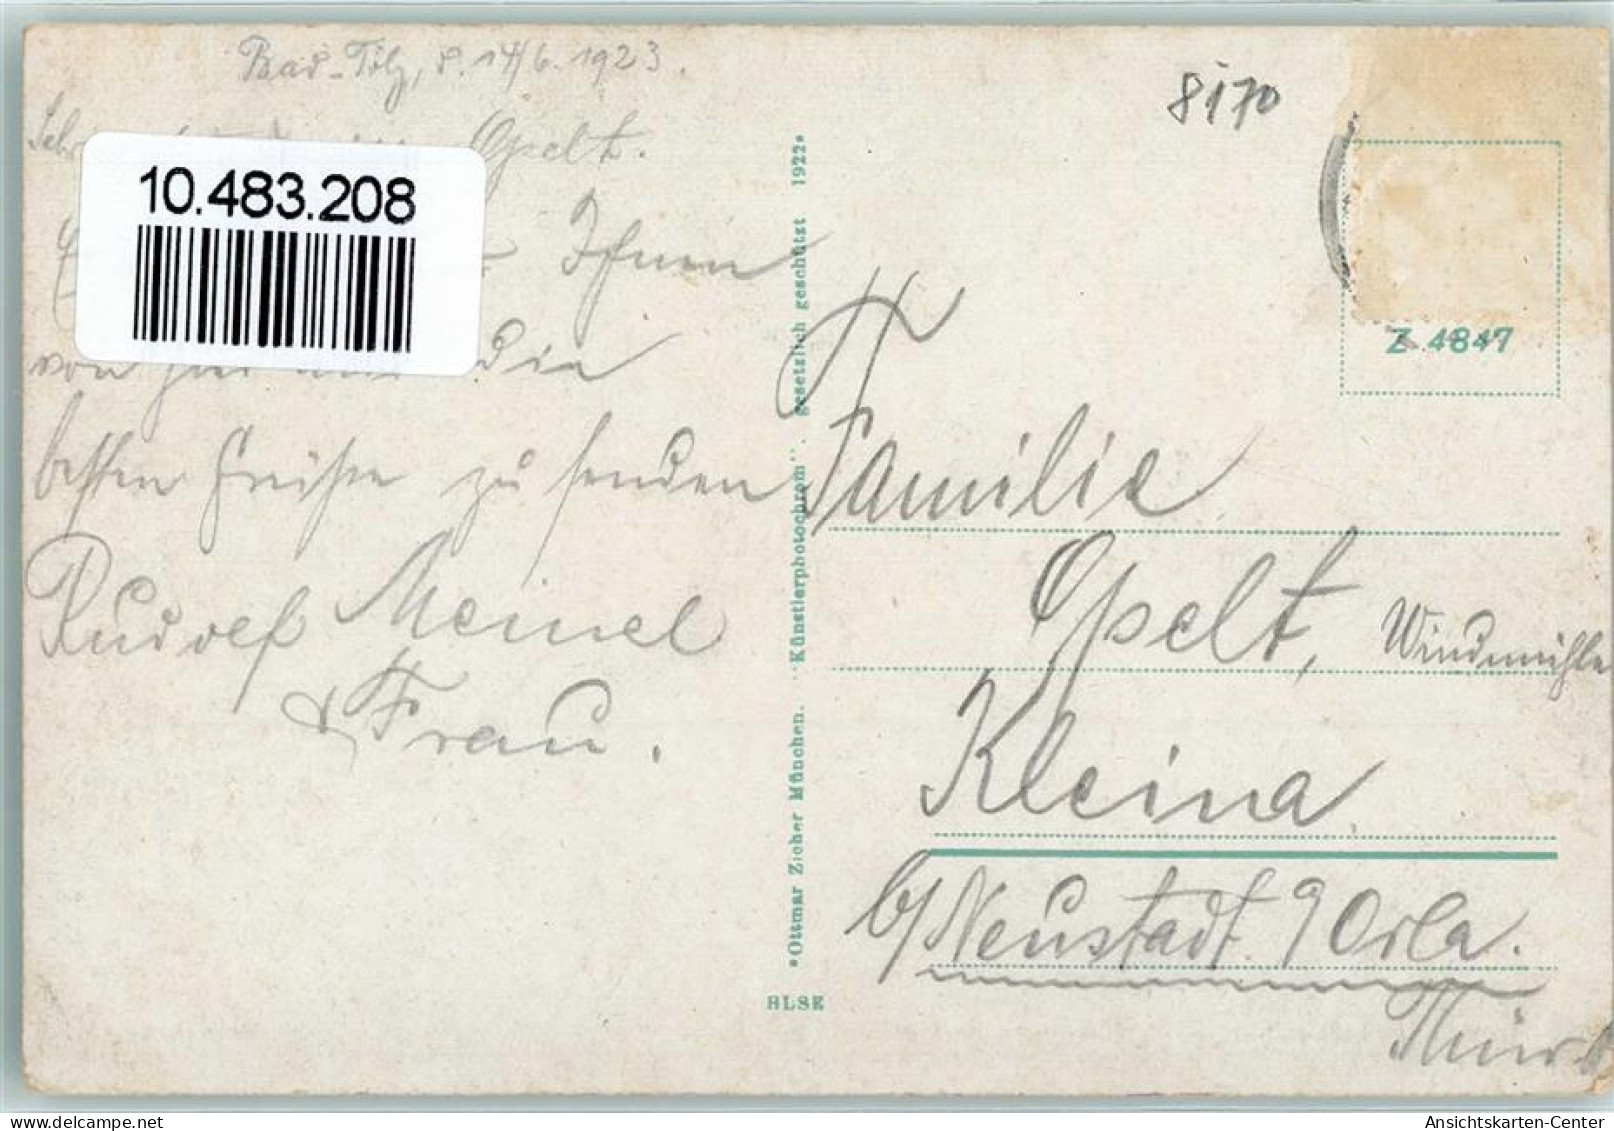 Bad-Tölz, d. 14/6. 1923.
Sehr Opelt.
Ihnen
von die
besten Grüße zu senden
Rudolf Meinel
& Frau.
10.483.208
*Ottmar Zieher München. "Künstlerphotochrom" gesetzlich geschützt 1922*
HLSE
8170
Z 4847
Familie
Opelt, Windmühle
Kleina
b/ Neustadt Orla.
Thür
Ansichtskarten-Center
https://www.delcampe.net